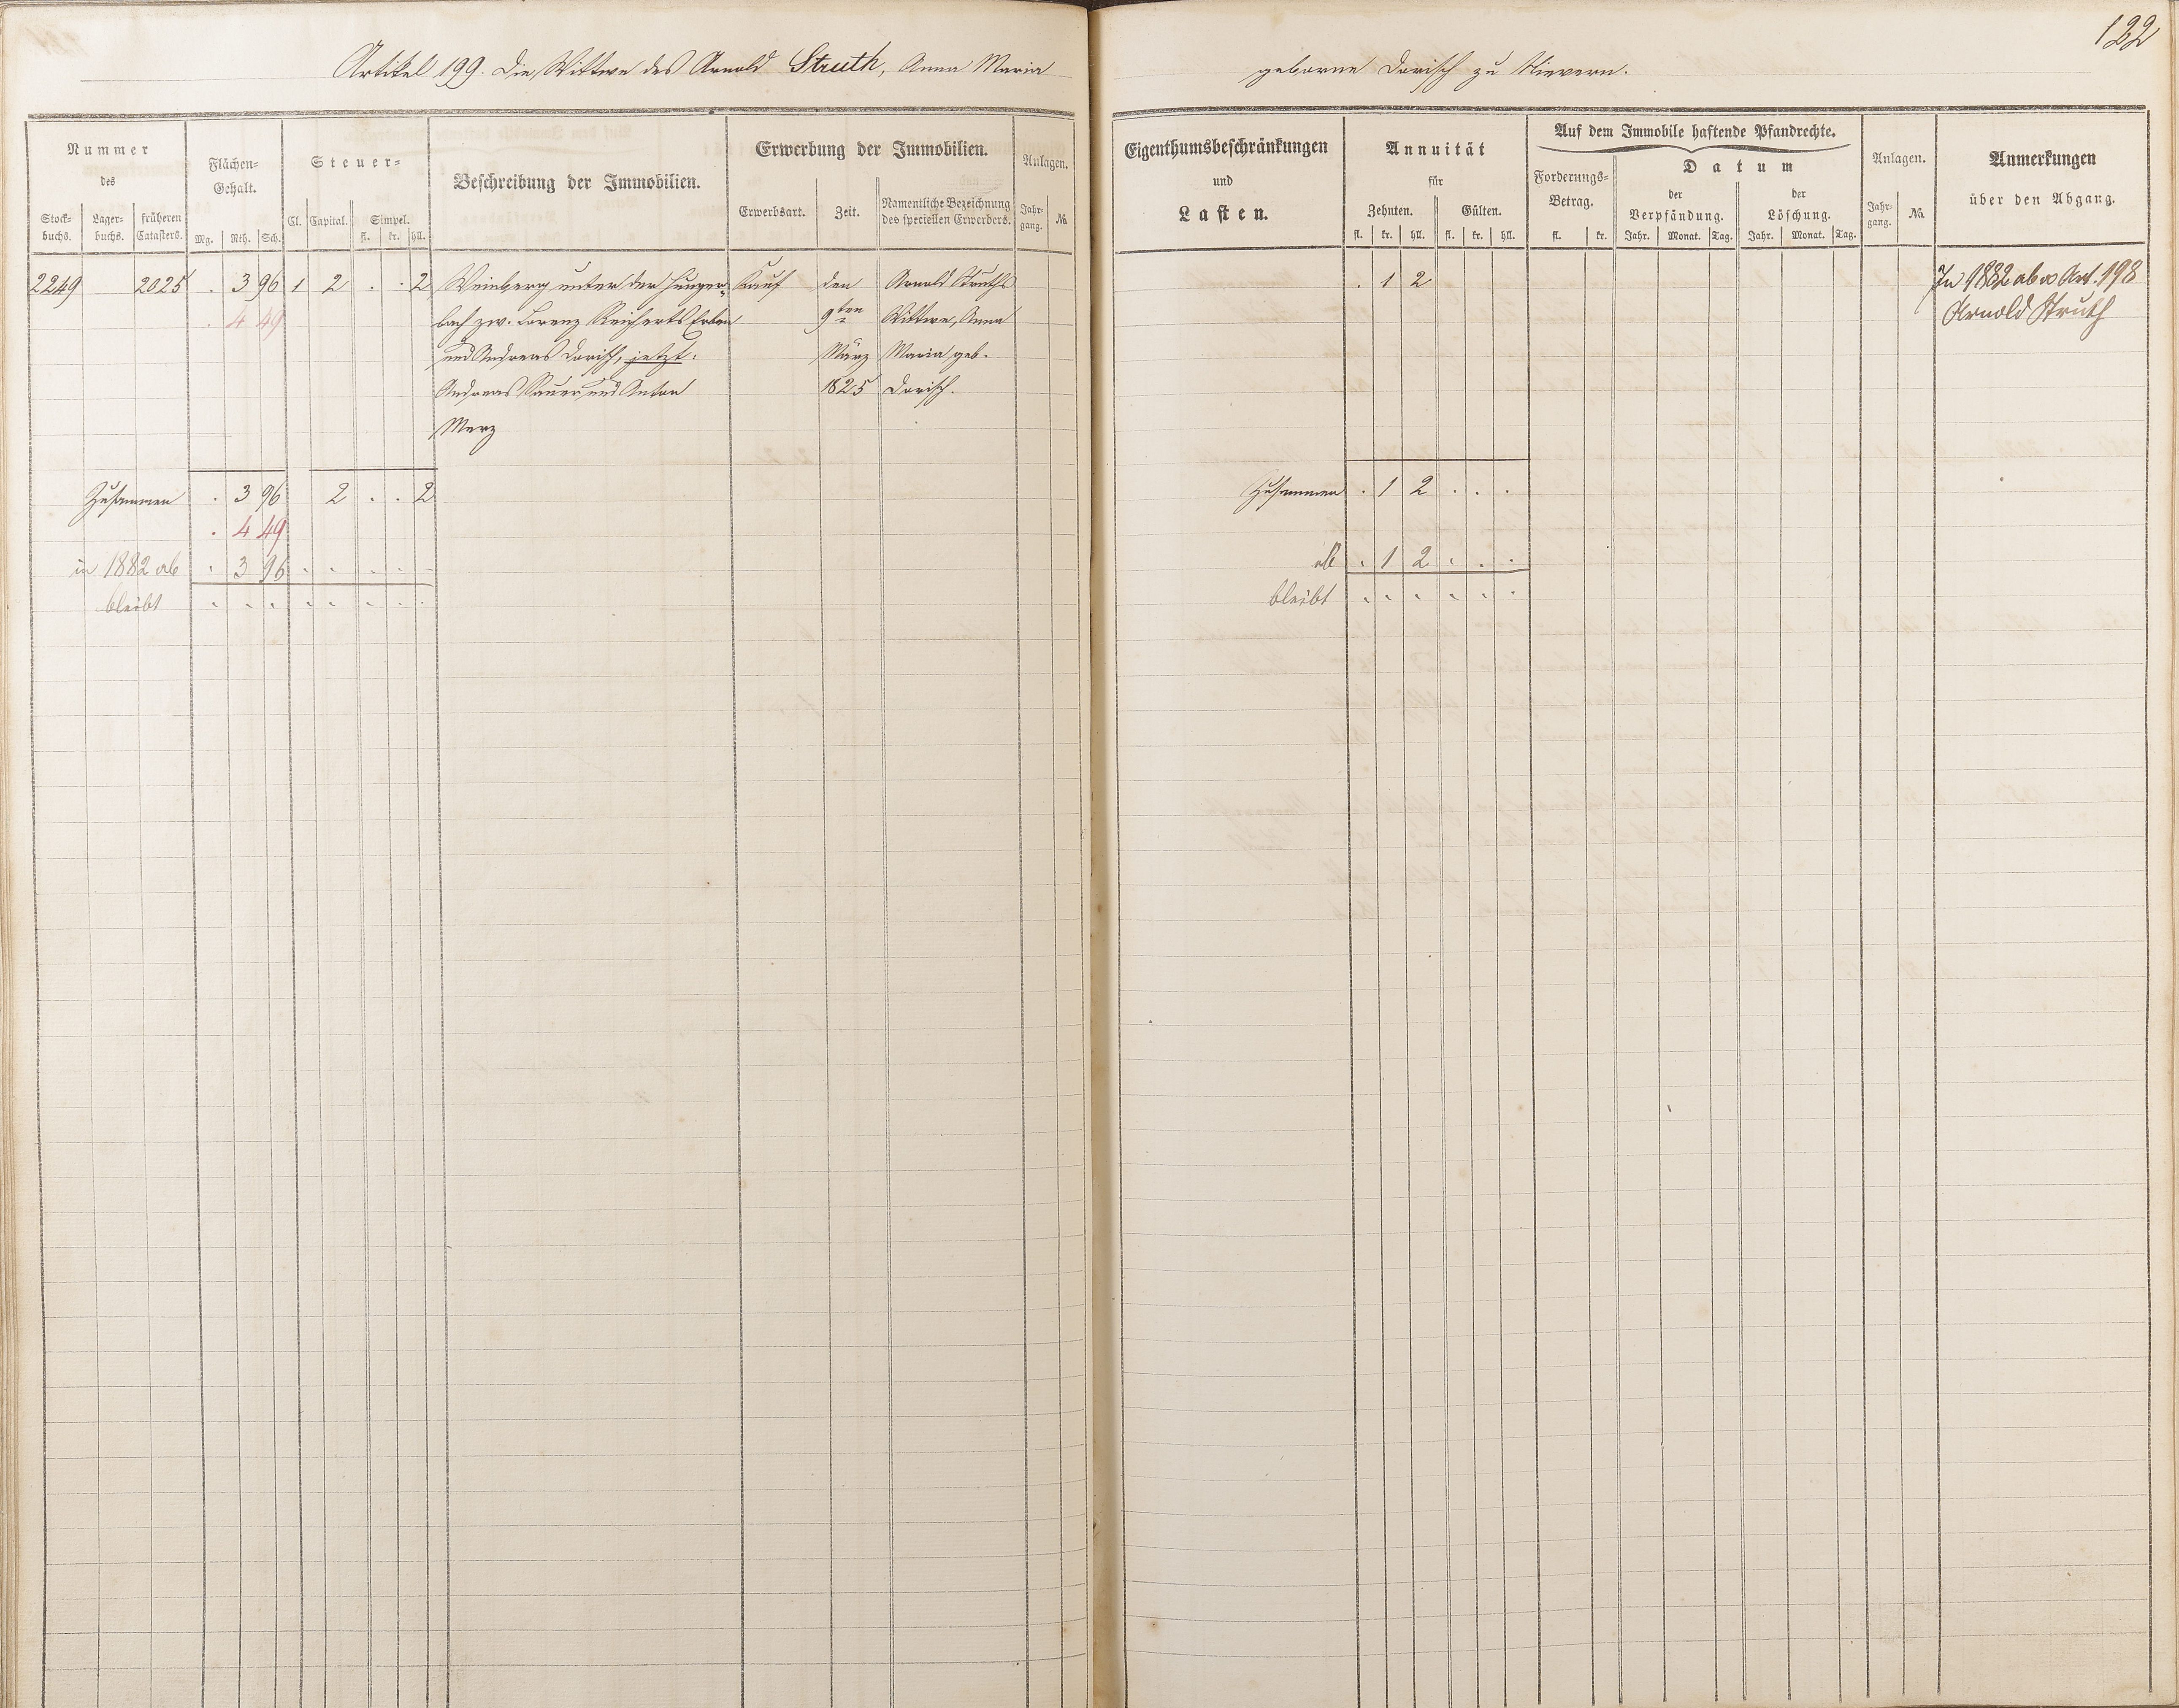 122
Artikel 199. Die Wittwe des Arnold Struth, Anna Maria geborne Dorisch zu Nievern.
Nummer des
Stock-buchs. Lager-buchs. früheren Catasters.
Flächen-Gehalt.
Mg. Rth. Sch.
Steuer-
Cl. Capital. Simpel.
fl. kr. hll.
Beschreibung der Immobilien.
Erwerbung der Immobilien.
Erwerbsart. Zeit. Namentliche Bezeichnung des speciellen Erwerbers.
Anlagen.
Jahr-gang. №
Eigenthumsbeschränkungen
und
Lasten.
Annuität
für
Zehnten. Gülten.
fl. kr. hll. fl. kr. hll.
Auf dem Immobile haftende Pfandrechte.
Forderungs-Betrag.
fl. kr.
Datum
der Verpfändung. der Löschung.
Jahr. Monat. Tag. Jahr. Monat. Tag.
Anlagen.
Jahr-gang. №.
Anmerkungen
über den Abgang.
2249 2025 . 3 96 1 2 . . 2 Weinberg unter der Hunger- Kauf den Arnold Struths . 1 2 In 1882 ab a Art. 198
. 4 49 bach zw. Lorenz Reicherts Erben 9ten Wittwe, Anna Arnold Struth
und Andreas Dorisch, jetzt: März Maria geb.
Andreas Sauer und Anton 1825 Dorisch.
Merz
Zusammen . 3 96 2 . . 2 Zusammen . 1 2 . . .
. 4 49
in 1882 ab . 3 96 . . . . . ab . 1 2 . . .
bleibt . . . . . . . . bleibt . . . . . .